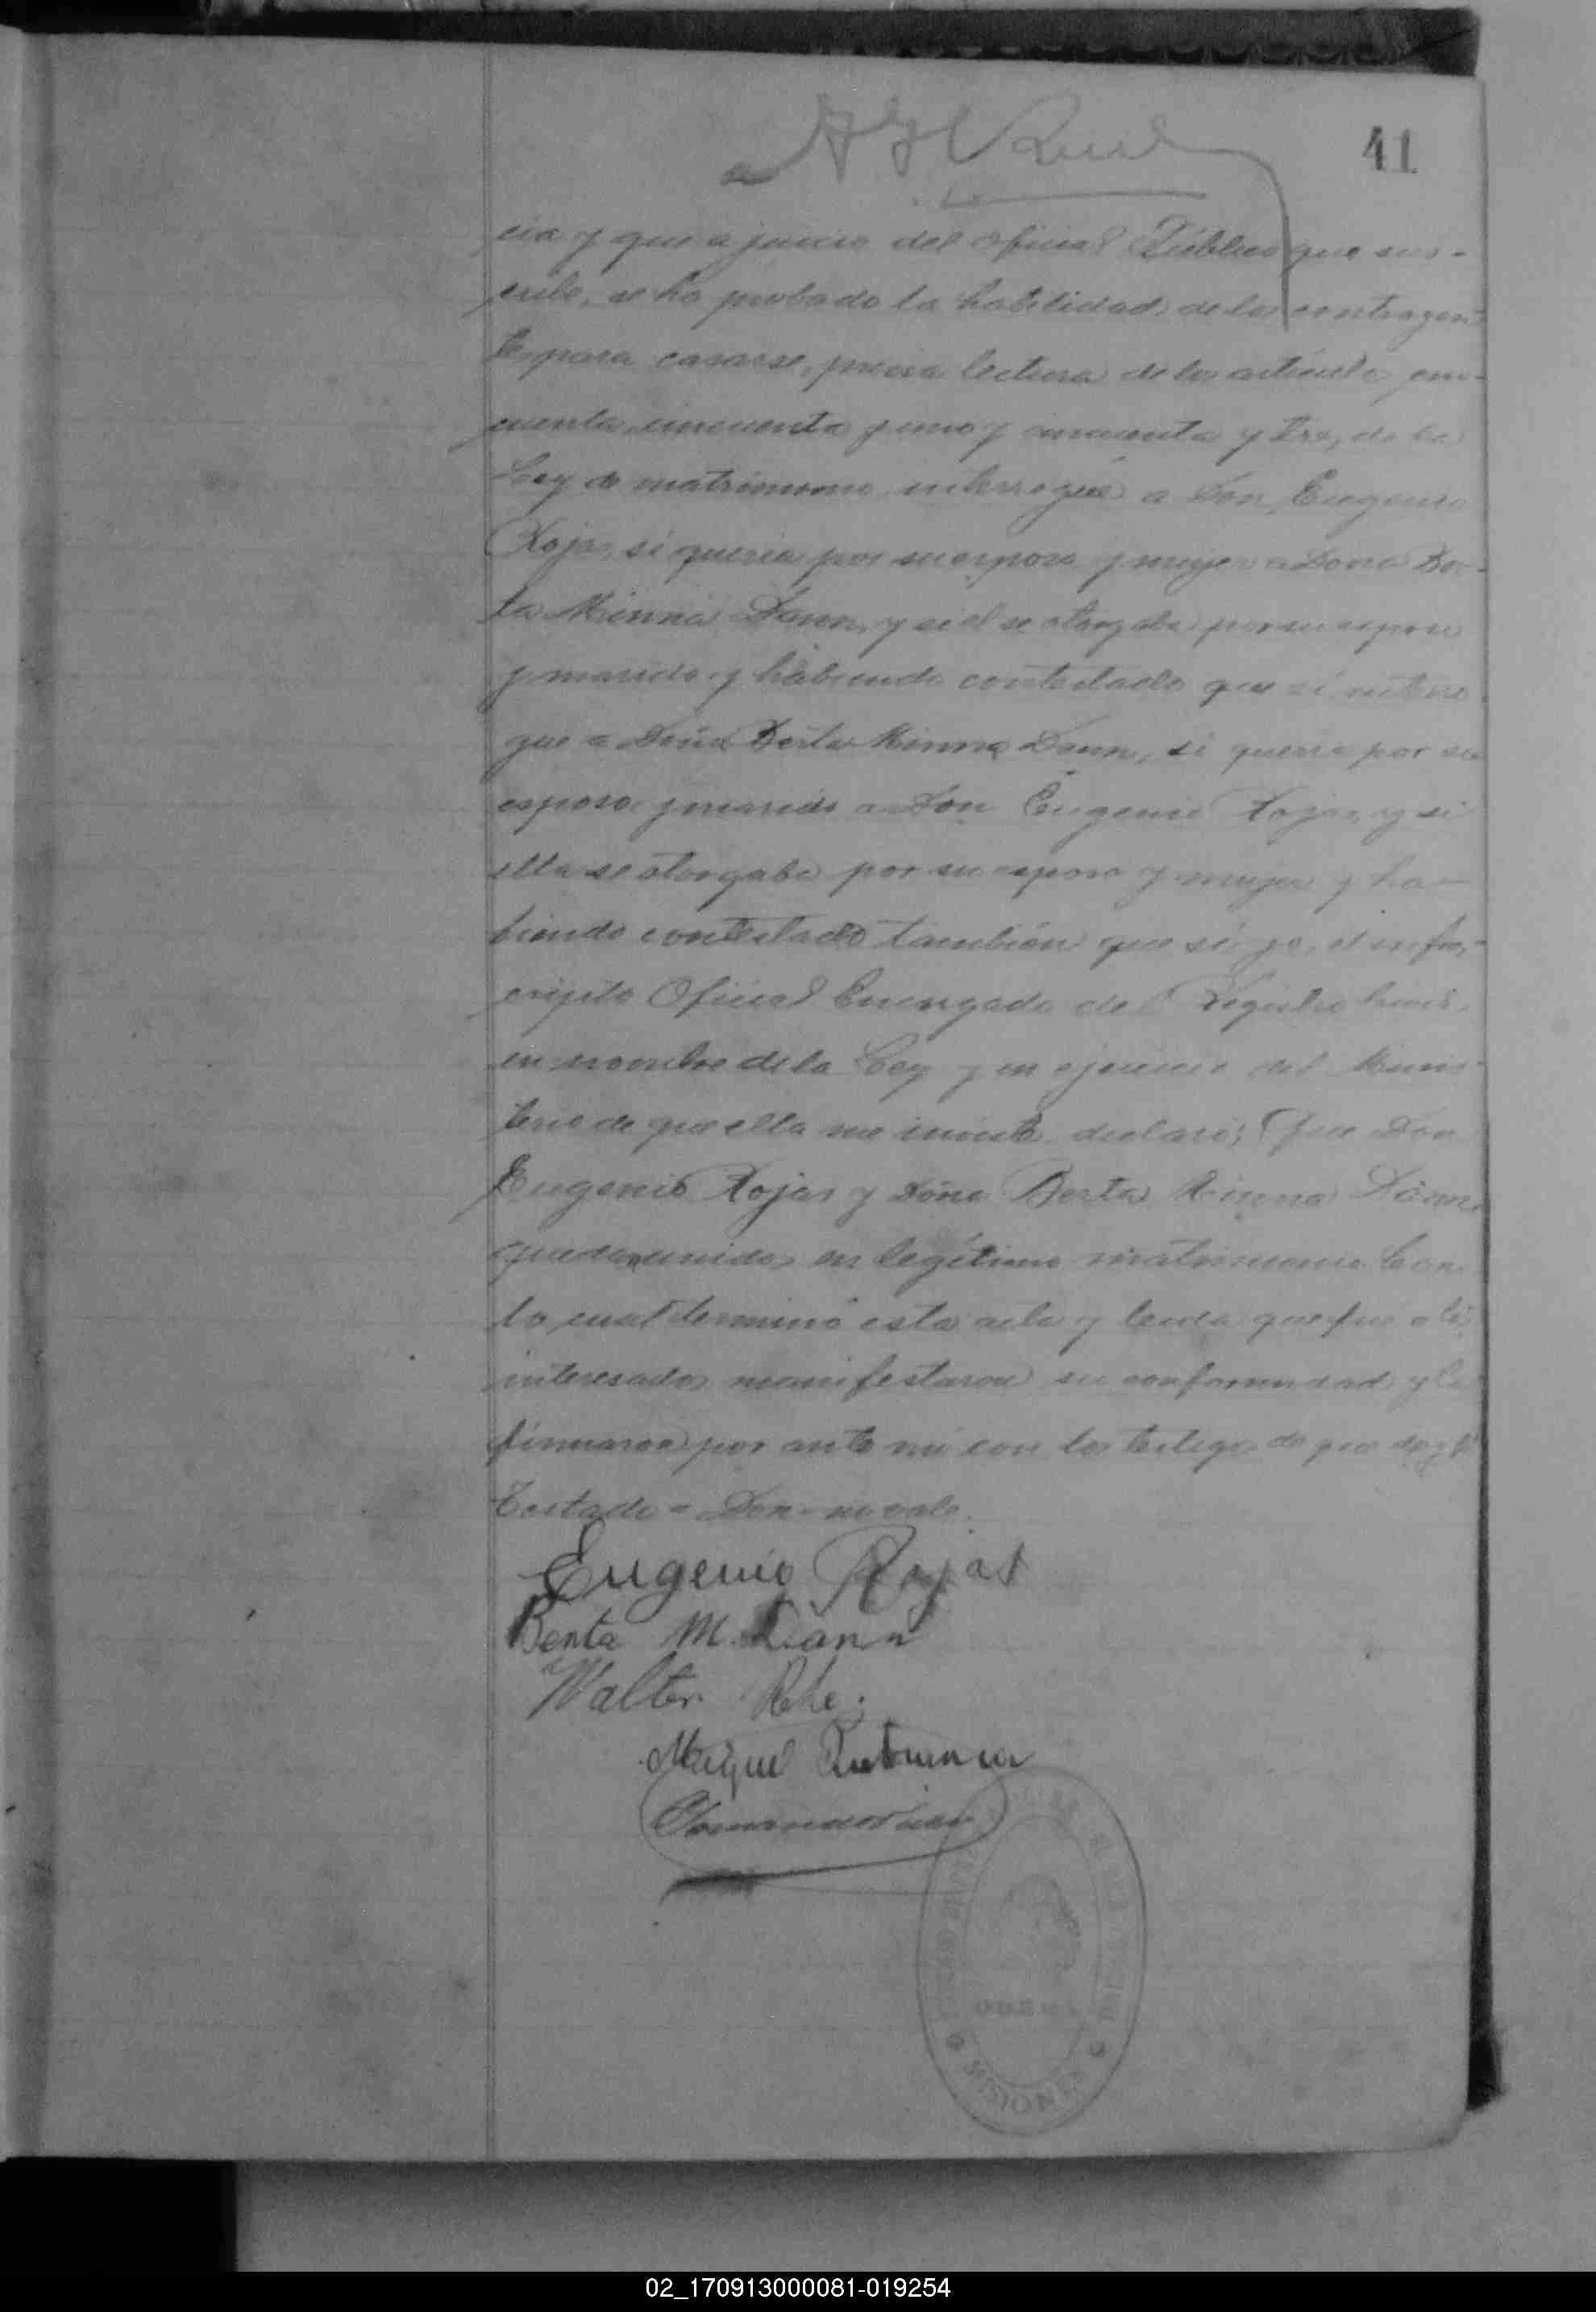 41
cia y que a juicio del Oficial Público que sus-
cribe, se ha probado la habilidad de los contrayen-
tes para casarse, previa lectura de los artículos cin-
cuenta, cincuenta y uno y cincuenta y tres, de la
Ley de matrimonio interrogué a Don Eugenio
Rojas, si quería por su esposa y mujer a Doña Ber-
ta Minna Dann, y si el se otorgaba por su esposo
y marido y habiendo contestado que sí interro
gue a Doña Berta Minna Dann, si quería por su
esposo y marido a Don Eugenio Rojas, y si
ella se otorgaba por su esposa y mujer y ha-
biendo contestado también que sí yo, el infras-
cripto Oficial Encargado del Registro Civil
en nombre de la Ley y en ejercicio del Minis-
terio de que ella me inviste declaro; Que Don
Eugenio Rojas y Doña Berta Minna Dann
quedan unidos en legítimo matrimonio. Con
lo cual terminó esta acta y leida que fue a los
interesados manifestaron su conformidad y la
firmaron por ante mi con los testigos de que doy fé
Testado = Don - no vale.
Eugenio Rojas
Berta M. Dann
Walter
Miguel
MISIONES
02_170913000081-019254